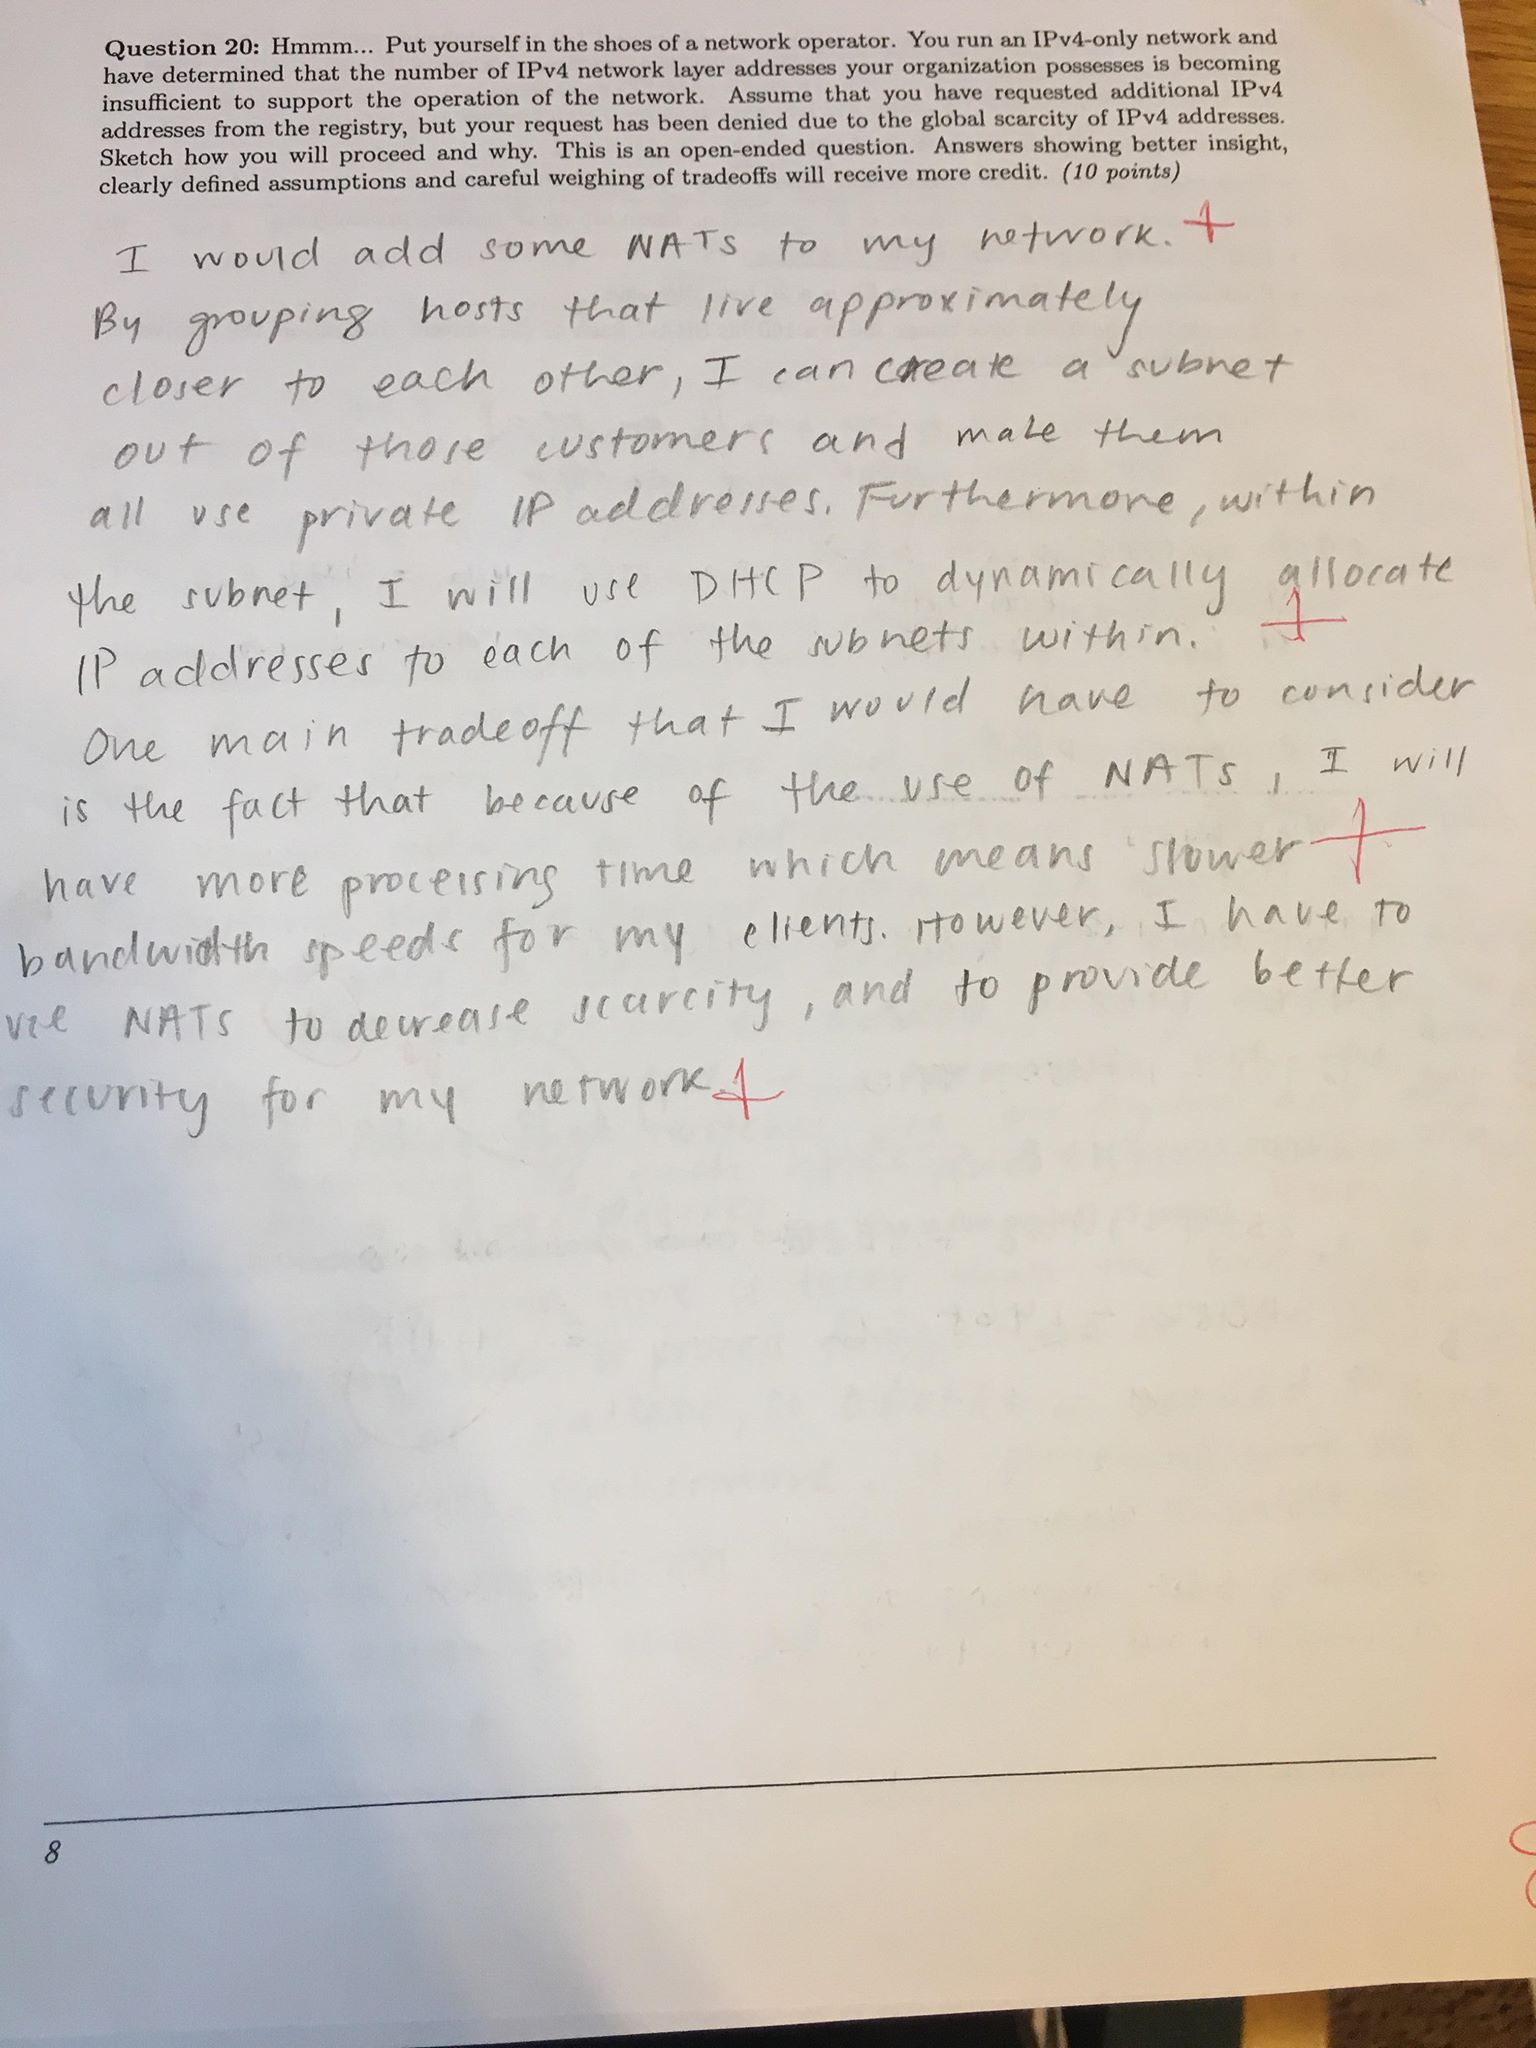 Question 20: Hmmm... Put yourself in the shoes of a network operator. You run an IPv4-only network and
have determined that the number of IPv4 network layer addresses your organization possesses is becoming
insufficient to support the operation of the network. Assume that you have requested additional IPv4
addresses from the registry, but your request has been denied due to the global scarcity of IPv4 addresses.
Sketch how you will proceed and why. This is an open-ended question. Answers showing better insight,
clearly defined assumptions and careful weighing of tradeoffs will receive more credit. (10 points)
I would add some NATs to my network. +
By grouping hosts that live approximately
closer to each other, I can create a subnet
out of those customers and make them
all use private IP addresses. Furthermore, within
the subnet, I will use DHCP to dynamically allocate
IP addresses to each of the subnets within. +
One main tradeoff that I would have to consider
is the fact that because of the use of NATs, I will
have more processing time which means slower +
bandwidth speeds for my clients. However, I have to
use NATs to decrease scarcity, and to provide better
security for my network. +
8